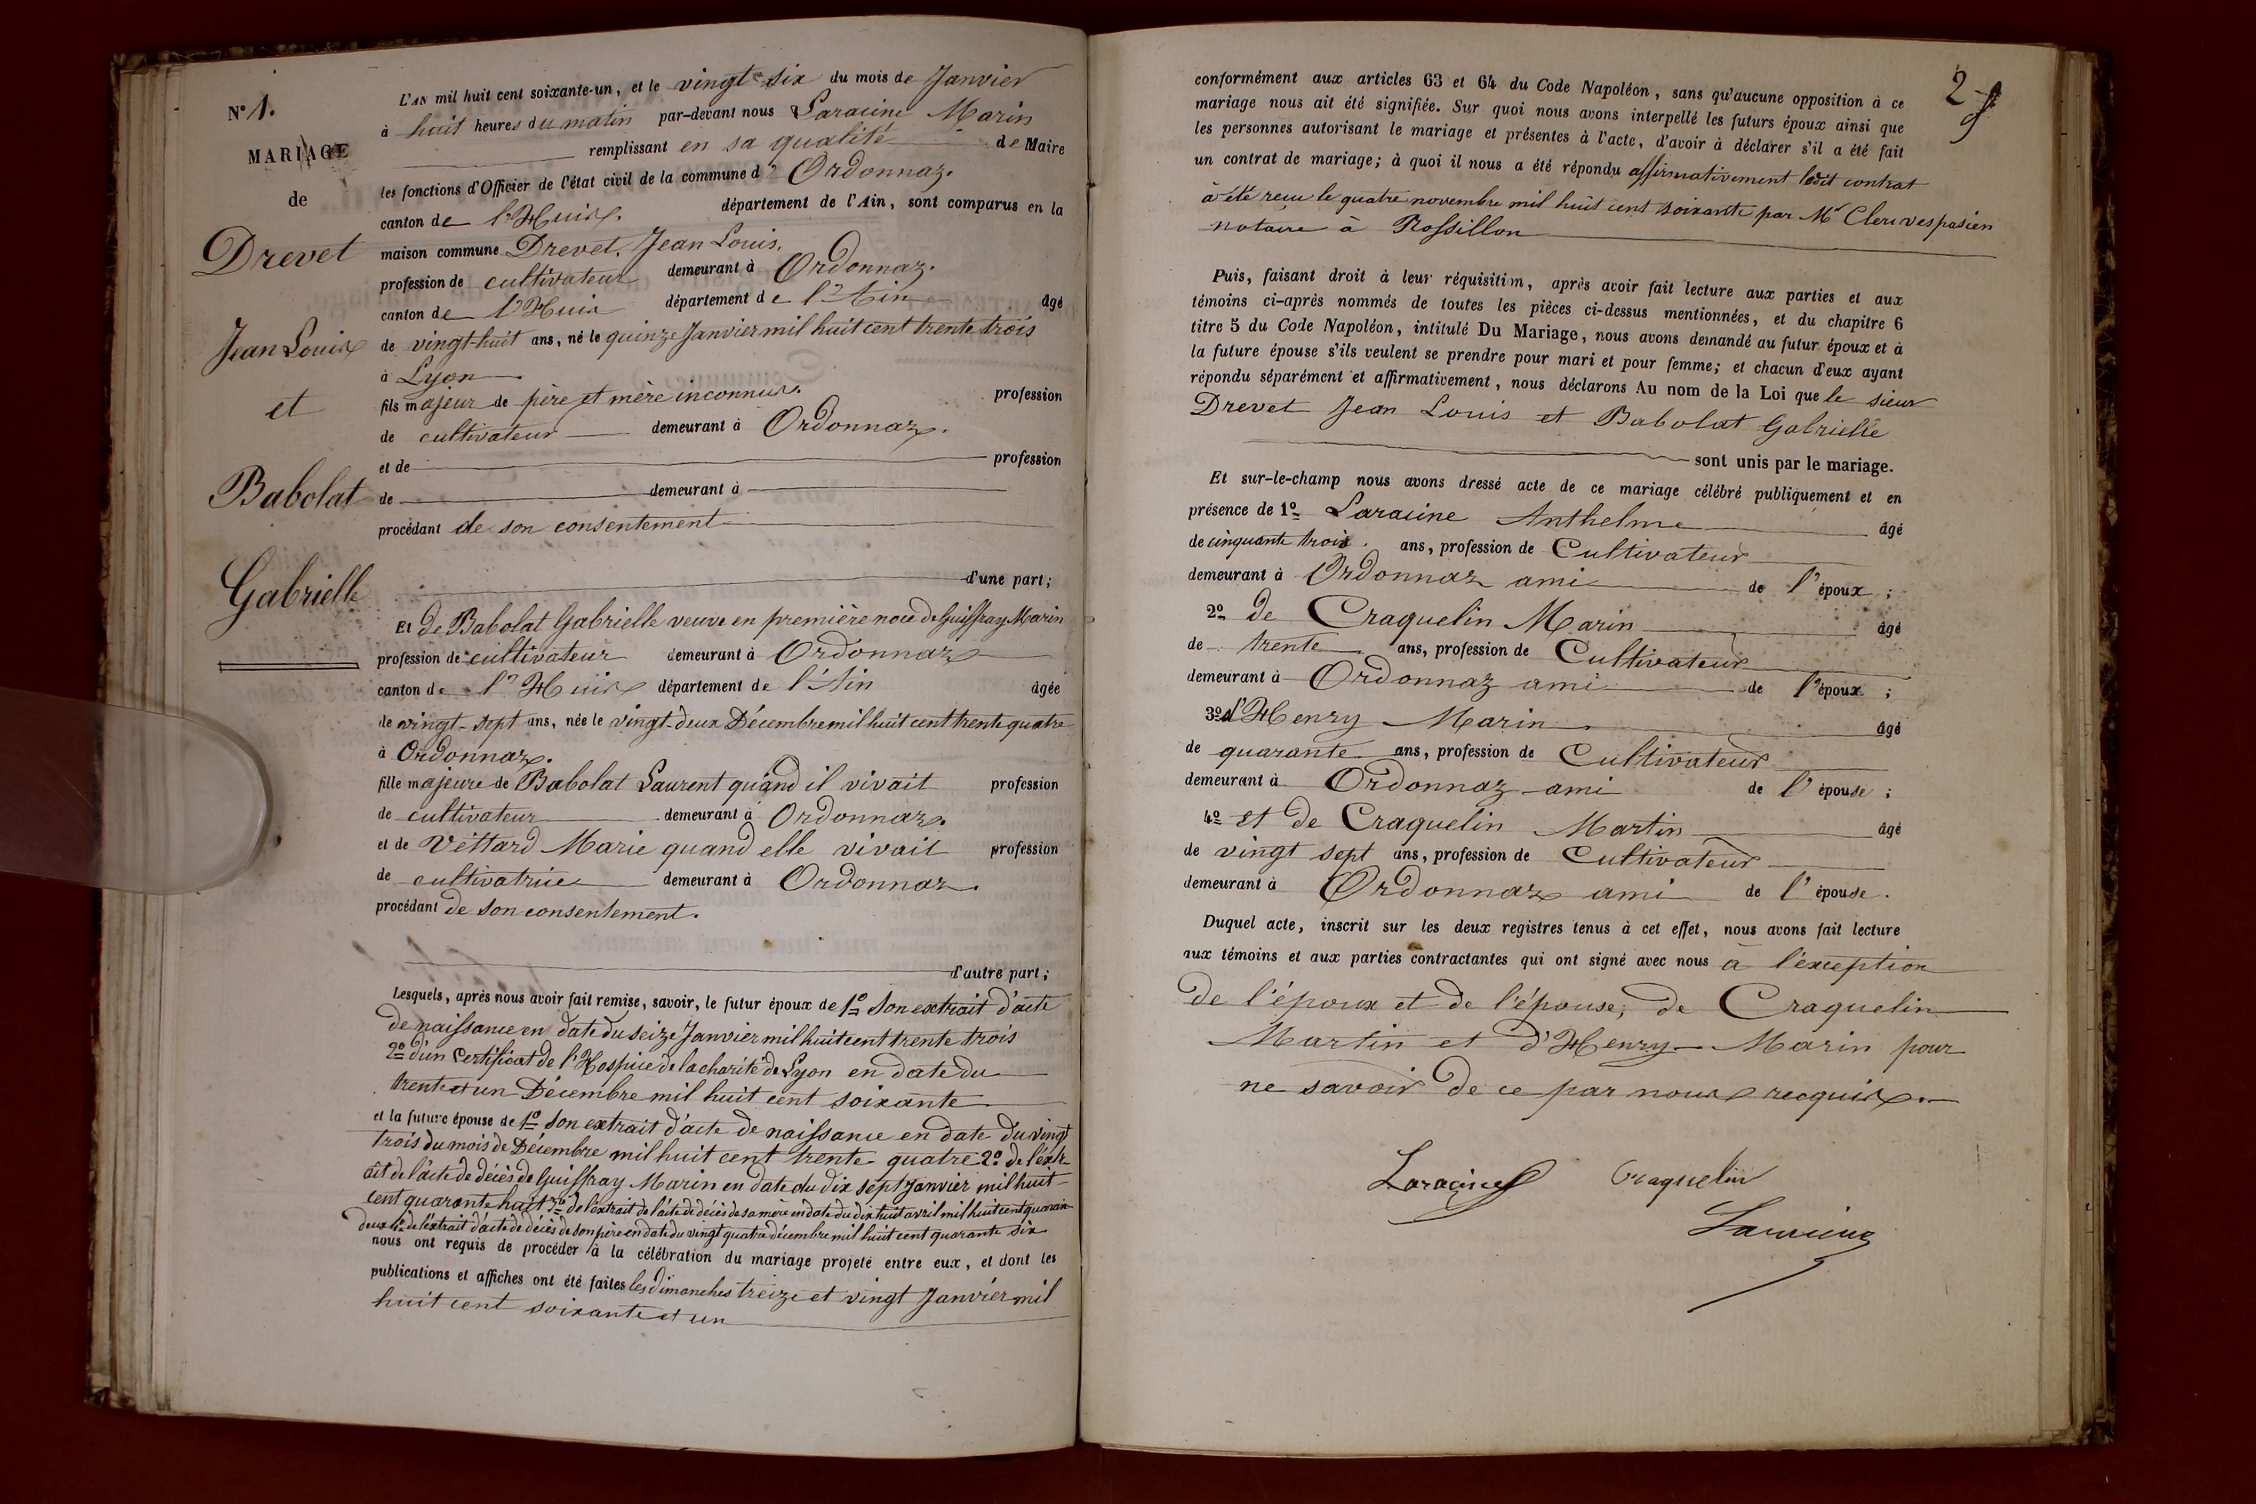 N° 1.
MARIAGE
de
Drevet
Jean Louis
et
Babolat
Gabrielle
L'AN mil huit cent soixante-un, et le vingt six du mois de Janvier
à huit heures du matin par-devant nous Laracine Marin
remplissant en sa qualité de Maire
les fonctions d'Officier de l'état civil de la commune d' Ordonnaz.
canton de l'Huis. département de l'Ain, sont comparus en la
maison commune Drevet. Jean Louis.
profession de cultivateur demeurant à Ordonnaz.
canton de l'Huis département de l'Ain âgé
de vingt-huit ans, né le quinze Janvier mil huit cent trente trois
à Lyon
fils majeur de père et mère inconnus. profession
de cultivateur demeurant à Ordonnaz.
et de profession
de demeurant à
procédant de son consentement
d'une part;
Et de Babolat Gabrielle veuve en première noce de Guiffray Marin
profession de cultivateur demeurant à Ordonnaz
canton de l'Huis département de l'Ain âgée
de vingt-sept ans, née le vingt-deux Décembre mil huit cent trente quatre
à Ordonnaz.
fille majeure de Babolat Laurent quand il vivait profession
de cultivateur demeurant à Ordonnaz.
et de Vettard Marie quand elle vivait profession
de cultivatrice demeurant à Ordonnaz.
procédant de son consentement.
d'autre part;
Lesquels, après nous avoir fait remise, savoir, le futur époux de 1° Son extrait d'acte
de naissance en date du seize Janvier mil huit cent trente trois
2° d'un Certificat de l'Hospice de la charité de Lyon en date du
trente et un Décembre mil huit cent soixante
et la future épouse de 1° Son extrait d'acte de naissance en date du vingt
trois du mois de Décembre mil huit cent trente quatre 2° de l'extr-
ait de l'acte de décès de Guiffray Marin en date du dix sept Janvier mil huit
cent quarante huit 3° de l'extrait de l'acte de décès de sa mère en date du dix huit avril mil huit cent quarante
deux 4° de l'extrait d'acte de décès de son père en date du vingt quatre décembre mil huit cent quarante six
nous ont requis de procéder à la célébration du mariage projeté entre eux, et dont les
publications et affiches ont été faites les dimanches treize et vingt Janvier mil
huit cent soixante et un
2
conformément aux articles 63 et 64 du Code Napoléon, sans qu'aucune opposition à ce
mariage nous ait été signifiée. Sur quoi nous avons interpellé les futurs époux ainsi que
les personnes autorisant le mariage et présentes à l'acte, d'avoir à déclarer s'il a été fait
un contrat de mariage; à quoi il nous a été répondu affirmativement ledit contrat
à été reçu le quatre novembre mil huit cent soixante par Mr Clerc vespasien
notaire à Rossillon
Puis, faisant droit à leur réquisition, après avoir fait lecture aux parties et aux
témoins ci-après nommés de toutes les pièces ci-dessus mentionnées, et du chapitre 6
titre 5 du Code Napoléon, intitulé Du Mariage, nous avons demandé au futur époux et à
la future épouse s'ils veulent se prendre pour mari et pour femme; et chacun d'eux ayant
répondu séparément et affirmativement, nous déclarons Au nom de la Loi que le sieur
Drevet Jean Louis et Babolat Gabrielle
sont unis par le mariage.
Et sur-le-champ nous avons dressé acte de ce mariage célébré publiquement et en
présence de 1° Laracine Anthelme âgé
de cinquante trois. ans, profession de Cultivateur
demeurant à Ordonnaz ami de l'époux;
2° de Craquelin Marin âgé
de trente ans, profession de Cultivateur
demeurant à Ordonnaz ami de l'époux;
3° d'Henry Marin âgé
de quarante ans, profession de Cultivateur
demeurant à Ordonnaz ami de l'épouse;
4° et de Craquelin Martin âgé
de vingt sept ans, profession de Cultivateur
demeurant à Ordonnaz ami de l'épouse.
Duquel acte, inscrit sur les deux registres tenus à cet effet, nous avons fait lecture
aux témoins et aux parties contractantes qui ont signé avec nous à l'exception
de l'époux et de l'épouse, de Craquelin
Martin et d'Henry Marin pour
ne savoir de ce par nous recquis.
Laracine Craquelin
Laracine